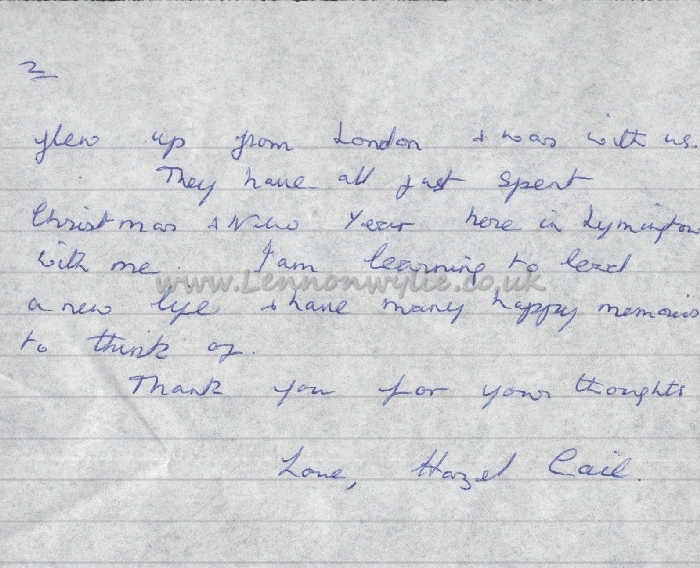 2
flew up from London & was with us.
They have all just spent
Christmas & New Year here in Lymington
with me. I am learning to lead
www.Lennonwylie.co.uk
a new life & have many happy memories
to think of.
Thank you for your thoughts
Love, Hazel Cail.